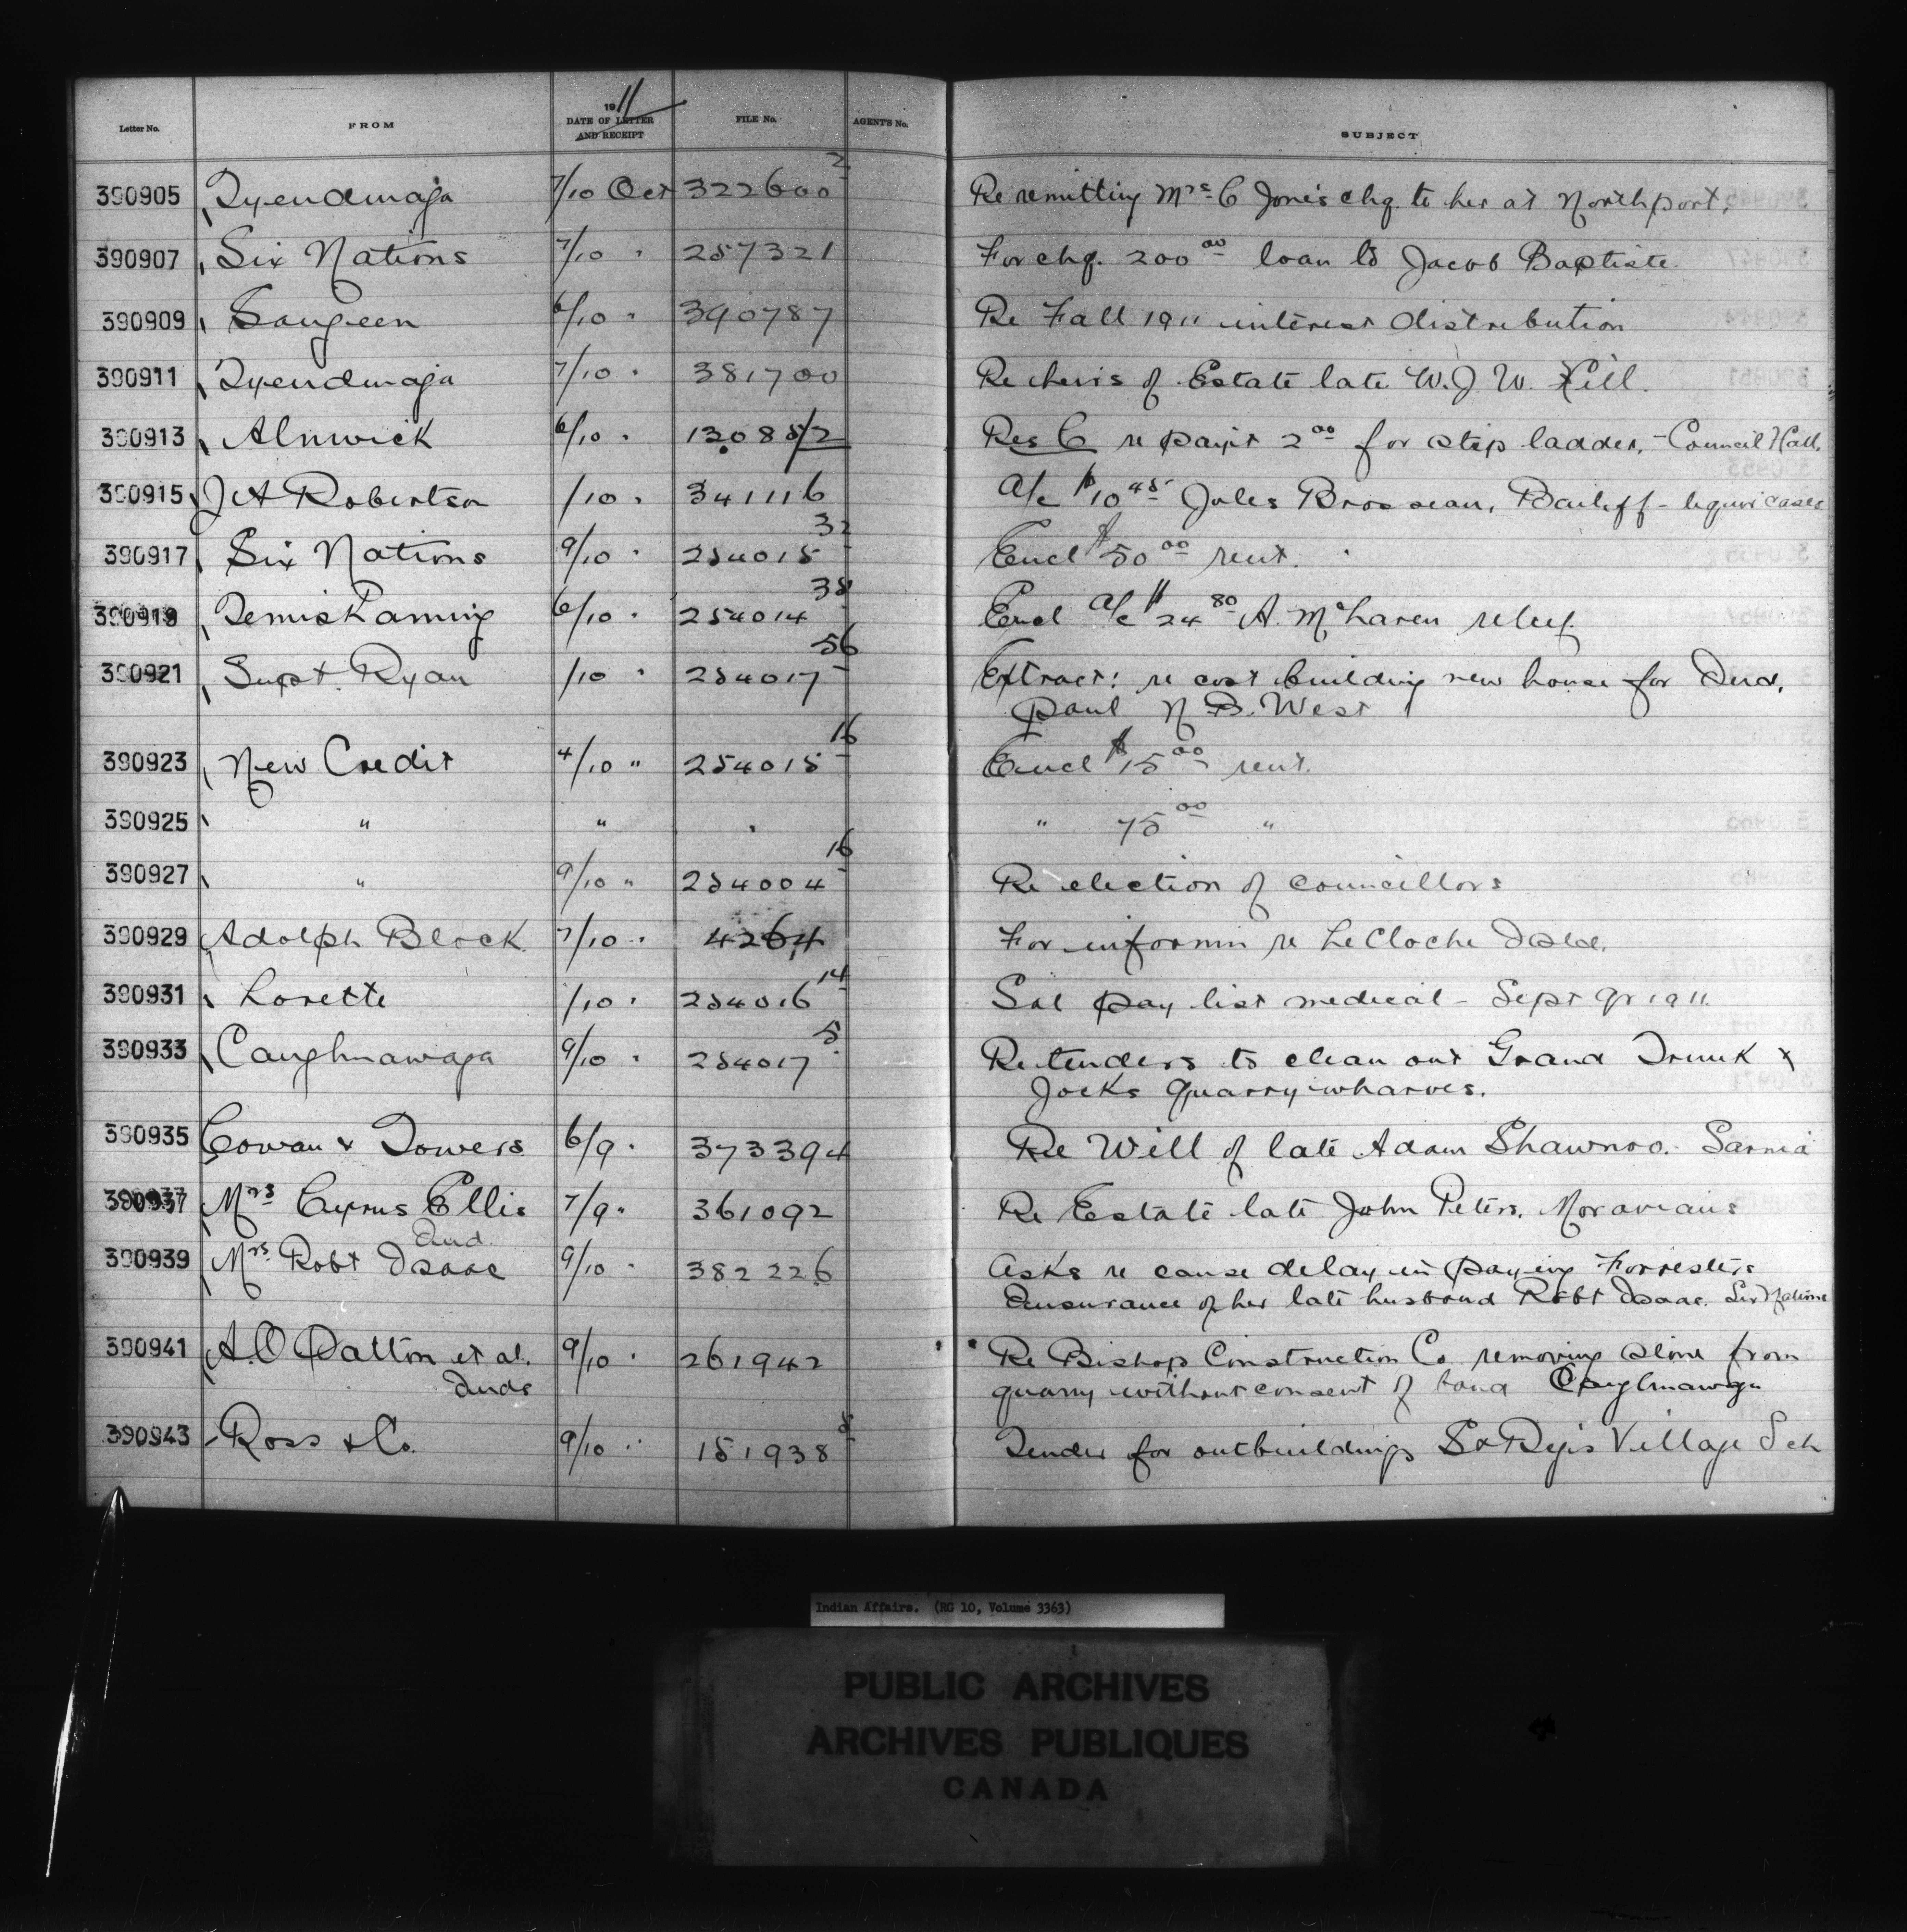 Letter No. FROM 1911 DATE OF LETTER AND RECEIPT FILE No. AGENT'S No. SUBJECT
390905 Tyendinaga 7/10 Oct 322600 2 Re remitting Mrs C Jones chq. to her at Northport.
390907 Six Nations 7/10 " 257321 For chq. 200 00 loan to Jacob Baptiste.
390909 Saugeen 6/10 " 390787 Re Fall 1911 interest distribution
390911 Tyendinaga 7/10 " 381700 Re heirs of Estate late W. J. W. Hill.
390913 Alnwick 6/10 " 130852 Res C re paym't 2 00 for step ladder, - Council Hall.
390915 J A Robertson /10 " 341116 a/c $10 45 Jules Brosseau, Bailiff - liquor cases
390917 Six Nations 9/10 " 254015 32 Encl $50 00 rent.
390919 Temiskaming 6/10 " 254014 38 Encl a/c $24 80 A. McLaren relief.
390921 Supt. Ryan /10 " 254017 56 Extract: re cost building new house for Ind.
Paul N. B. West
390923 New Credit 4/10 " 254015 16 Encl $15 00 rent.
390925 " " " " 75 00 "
390927 " 9/10 " 254004 16 Re election of councillors
390929 Adolph Block 7/10 " 4264 For informn re LeCloche Isld.
390931 Lorette /10 " 254016 14 Sal pay list medical - Sept qr 1911.
390933 Caughnawaga 9/10 " 254017 5 Re tenders to clean out Grand Trunk &
Jocks quarry wharves.
390935 Cowan & Towers 6/9 " 373394 Re Will of late Adam Shawnoo. Sarnia
390937 Mrs Cyrus Ellis 7/9 " 361092 Re Estate late John Peters. Moravians
Ind.
390939 Mrs Robt Isaac 9/10 " 382226 Asks re cause delay in paying Forresters
Insurance of her late husband Robt Isaac. Six Nations
390941 A. O Dalton et al. 9/10 " 261942 Re Bishop Construction Co removing stone from
Inds quarry without consent of band Caughnawaga
390943 Ross & Co. 9/10 " 151938 8 Tender for outbuildings St Regis Village Sch
Indian Affairs. (RG 10, Volume 3363)
PUBLIC ARCHIVES
ARCHIVES PUBLIQUES
CANADA